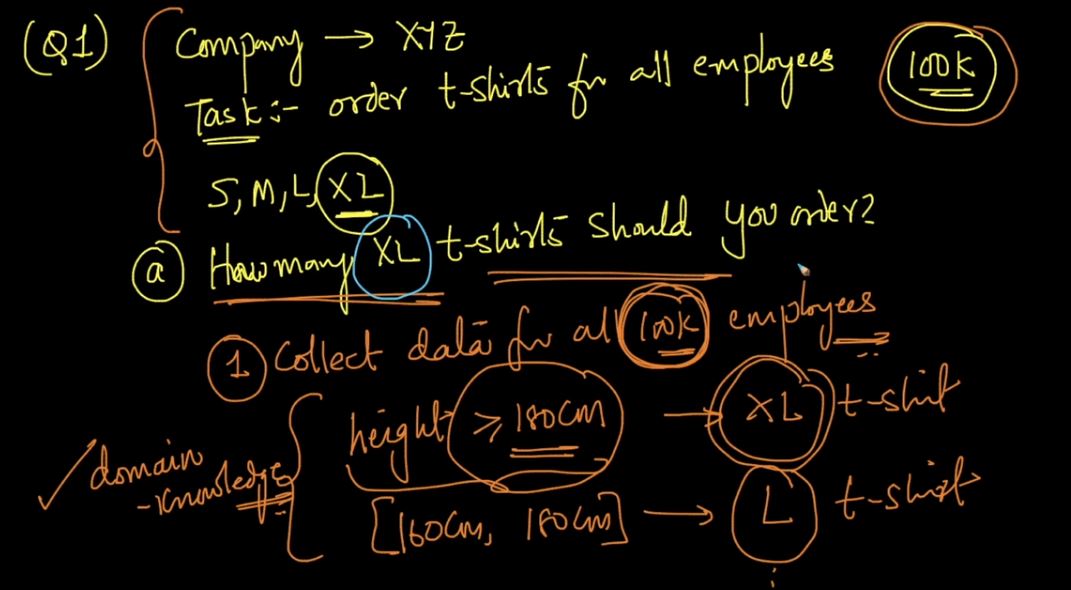 (Q1) Company → XYZ
Task:- order t-shirts for all employees 100k
S, M, L, XL
(a) How many XL t-shirts should you order?
(1) Collect data for all 100k employees
height ≥ 180cm → XL t-shirt
domain-knowledge
[160cm, 180cm] → L t-shirt